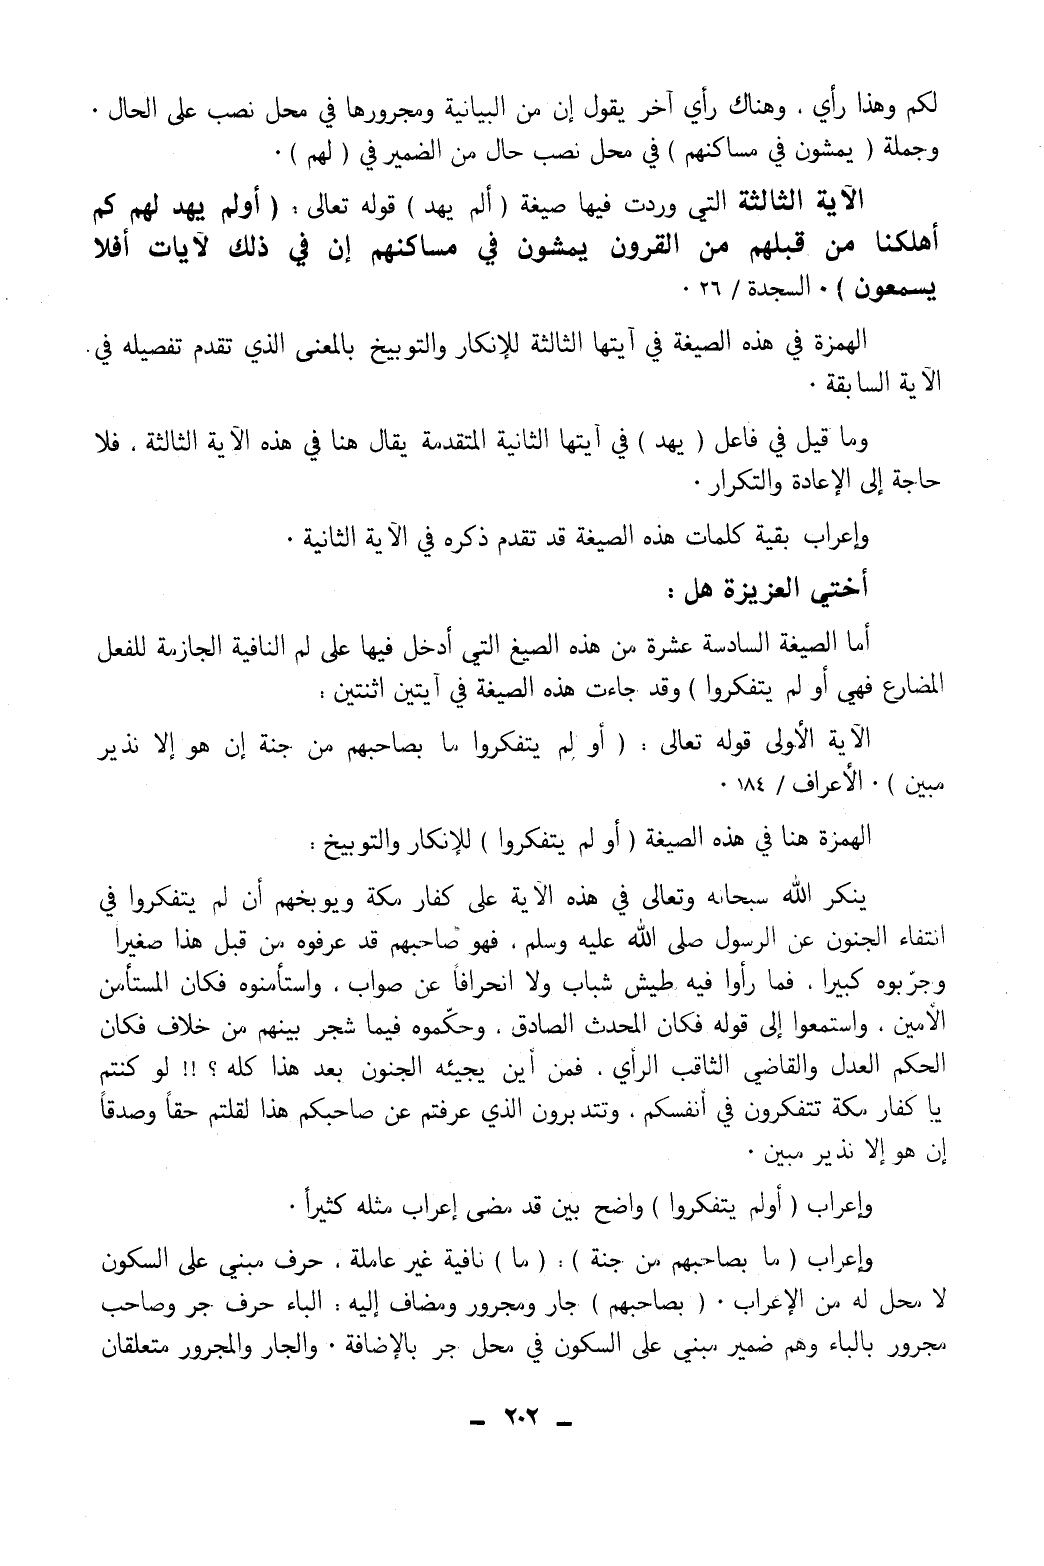 لكم وهذا رأي ، وهناك رأي آخر يقول إن من البيانية ومجرورها في محل نصب على الحال ٠
وجملة ( يمشون في مساكنهم ) في محل نصب حال من الضمير في ( لهم ) ٠
الآية الثالثة التي وردت فيها صيغة ( ألم يهد ) قوله تعالى : ( أولم يهد لهم كم
أهلكنا من قبلهم من القرون يمشون في مساكنهم إن في ذلك لآيات أفلا
يسمعون ) ٠ السجدة / ٢٦ ٠
الهمزة في هذه الصيغة في آيتها الثالثة للإنكار والتوبيخ بالمعنى الذي تقدم تفصيله في
الآية السابقة ٠
وما قيل في فاعل ( يهد ) في آيتها الثانية المتقدمة يقال هنا في هذه الآية الثالثة ، فلا
حاجة إلى الإعادة والتكرار ٠
وإعراب بقية كلمات هذه الصيغة قد تقدم ذكره في الآية الثانية ٠
أختي العزيزة هل :
أما الصيغة السادسة عشرة من هذه الصيغ التي أدخل فيها على لم النافية الجازمة للفعل
المضارع فهي أو لم يتفكروا ) وقد جاءت هذه الصيغة في آيتين اثنتين :
الآية الأولى قوله تعالى : ( أو لم يتفكروا ما بصاحبهم من جنة إن هو إلا نذير
مبين ) ٠ الأعراف / ١٨٤ ٠
الهمزة هنا في هذه الصيغة ( أو لم يتفكروا ) للإنكار والتوبيخ :
ينكر الله سبحانه وتعالى في هذه الآية على كفار مكة ويوبخهم أن لم يتفكروا في
انتفاء الجنون عن الرسول صلى الله عليه وسلم ، فهو صاحبهم قد عرفوه من قبل هذا صغيراً
وجرّبوه كبيرا ، فما رأوا فيه طيش شباب ولا انحرافاً عن صواب ، واستأمنوه فكان المستأمن
الأمين ، واستمعوا إلى قوله فكان المحدث الصادق ، وحكّموه فيما شجر بينهم من خلاف فكان
الحكم العدل والقاضي الثاقب الرأي ، فمن أين يجيئه الجنون بعد هذا كله ؟ !! لو كنتم
يا كفار مكة تتفكرون في أنفسكم ، وتتدبرون الذي عرفتم عن صاحبكم هذا لقلتم حقاً وصدقاً
إن هو إلا نذير مبين ٠
وإعراب ( أولم يتفكروا ) واضح بين قد مضى إعراب مثله كثيراً ٠
وإعراب ( ما بصاحبهم من جنة ) : ( ما ) نافية غير عاملة ، حرف مبني على السكون
لا محل له من الإعراب ٠ ( بصاحبهم ) جار ومجرور ومضاف إليه : الباء حرف جر وصاحب
مجرور بالباء وهم ضمير مبني على السكون في محل جر بالإضافة ٠ والجار والمجرور متعلقان
ـ ٢٠٢ ـ